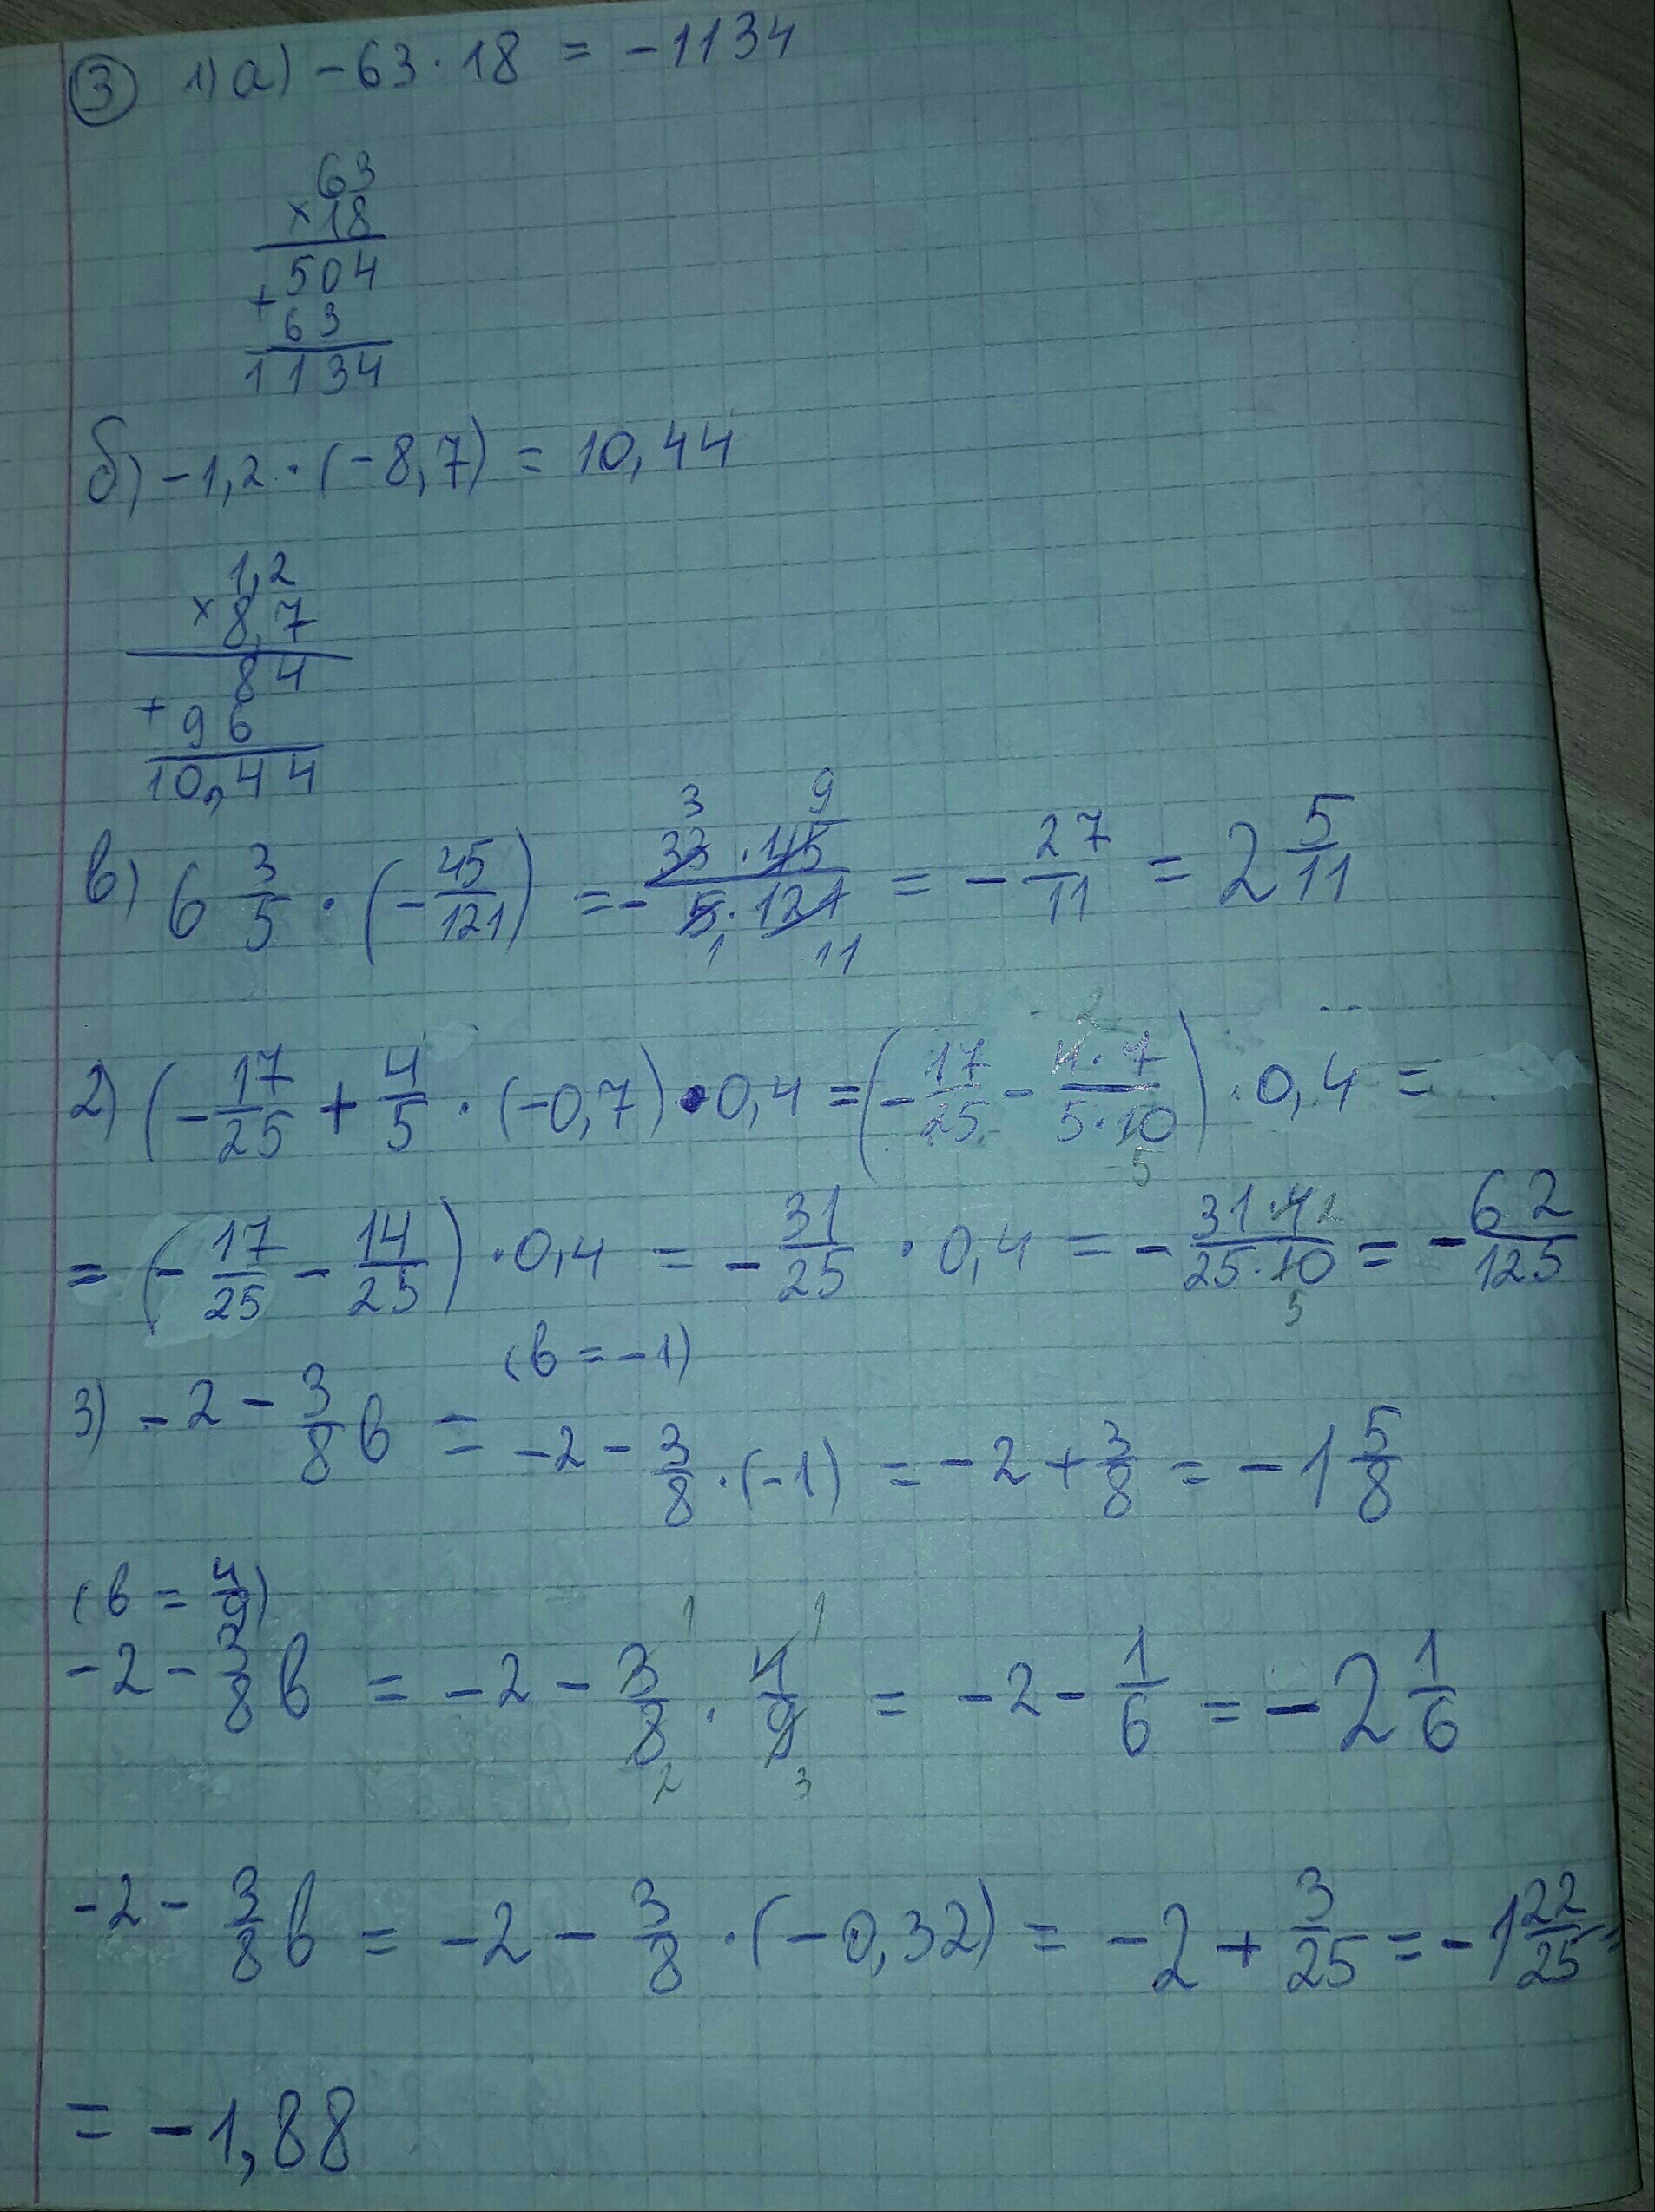 ③ 1) а) -63·18 = -1134
63
×18
504
+
63
1134
б) -1,2·(-8,7) = 10,44
1,2
×8,7
84
+96
10,44
в) 6 3/5 · (-45/121) = - 33·45/5·121 = - 27/11 = 2 5/11
3 9
1 11
2) (-17/25 + 4/5 · (-0,7)·0,4 = (-17/25 - 4·7/5·10)·0,4 =
2
5
= (-17/25 - 14/25)·0,4 = -31/25 · 0,4 = - 31·4/25·10 = - 62/125
2
5
(в = -1)
3) -2 - 3/8 в = -2 - 3/8 ·(-1) = -2 + 3/8 = -1 5/8
(в = 4/9)
-2 - 3/8 в = -2 - 3/8 · 4/9 = -2 - 1/6 = -2 1/6
1 1
2 3
-2 - 3/8 в = -2 - 3/8 ·(-0,32) = -2 + 3/25 = -1 22/25 =
= -1,88